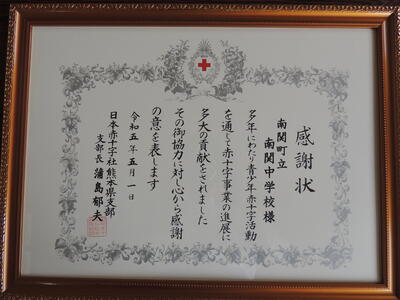 感謝状
南関町立
南関中学校様
多年にわたり青少年赤十字活動
を通して赤十字事業の進展に
多大の貢献をされました
その御協力に対し心から感謝
の意を表します
令和五年五月一日
日本赤十字社熊本県支部
支部長 蒲島郁夫